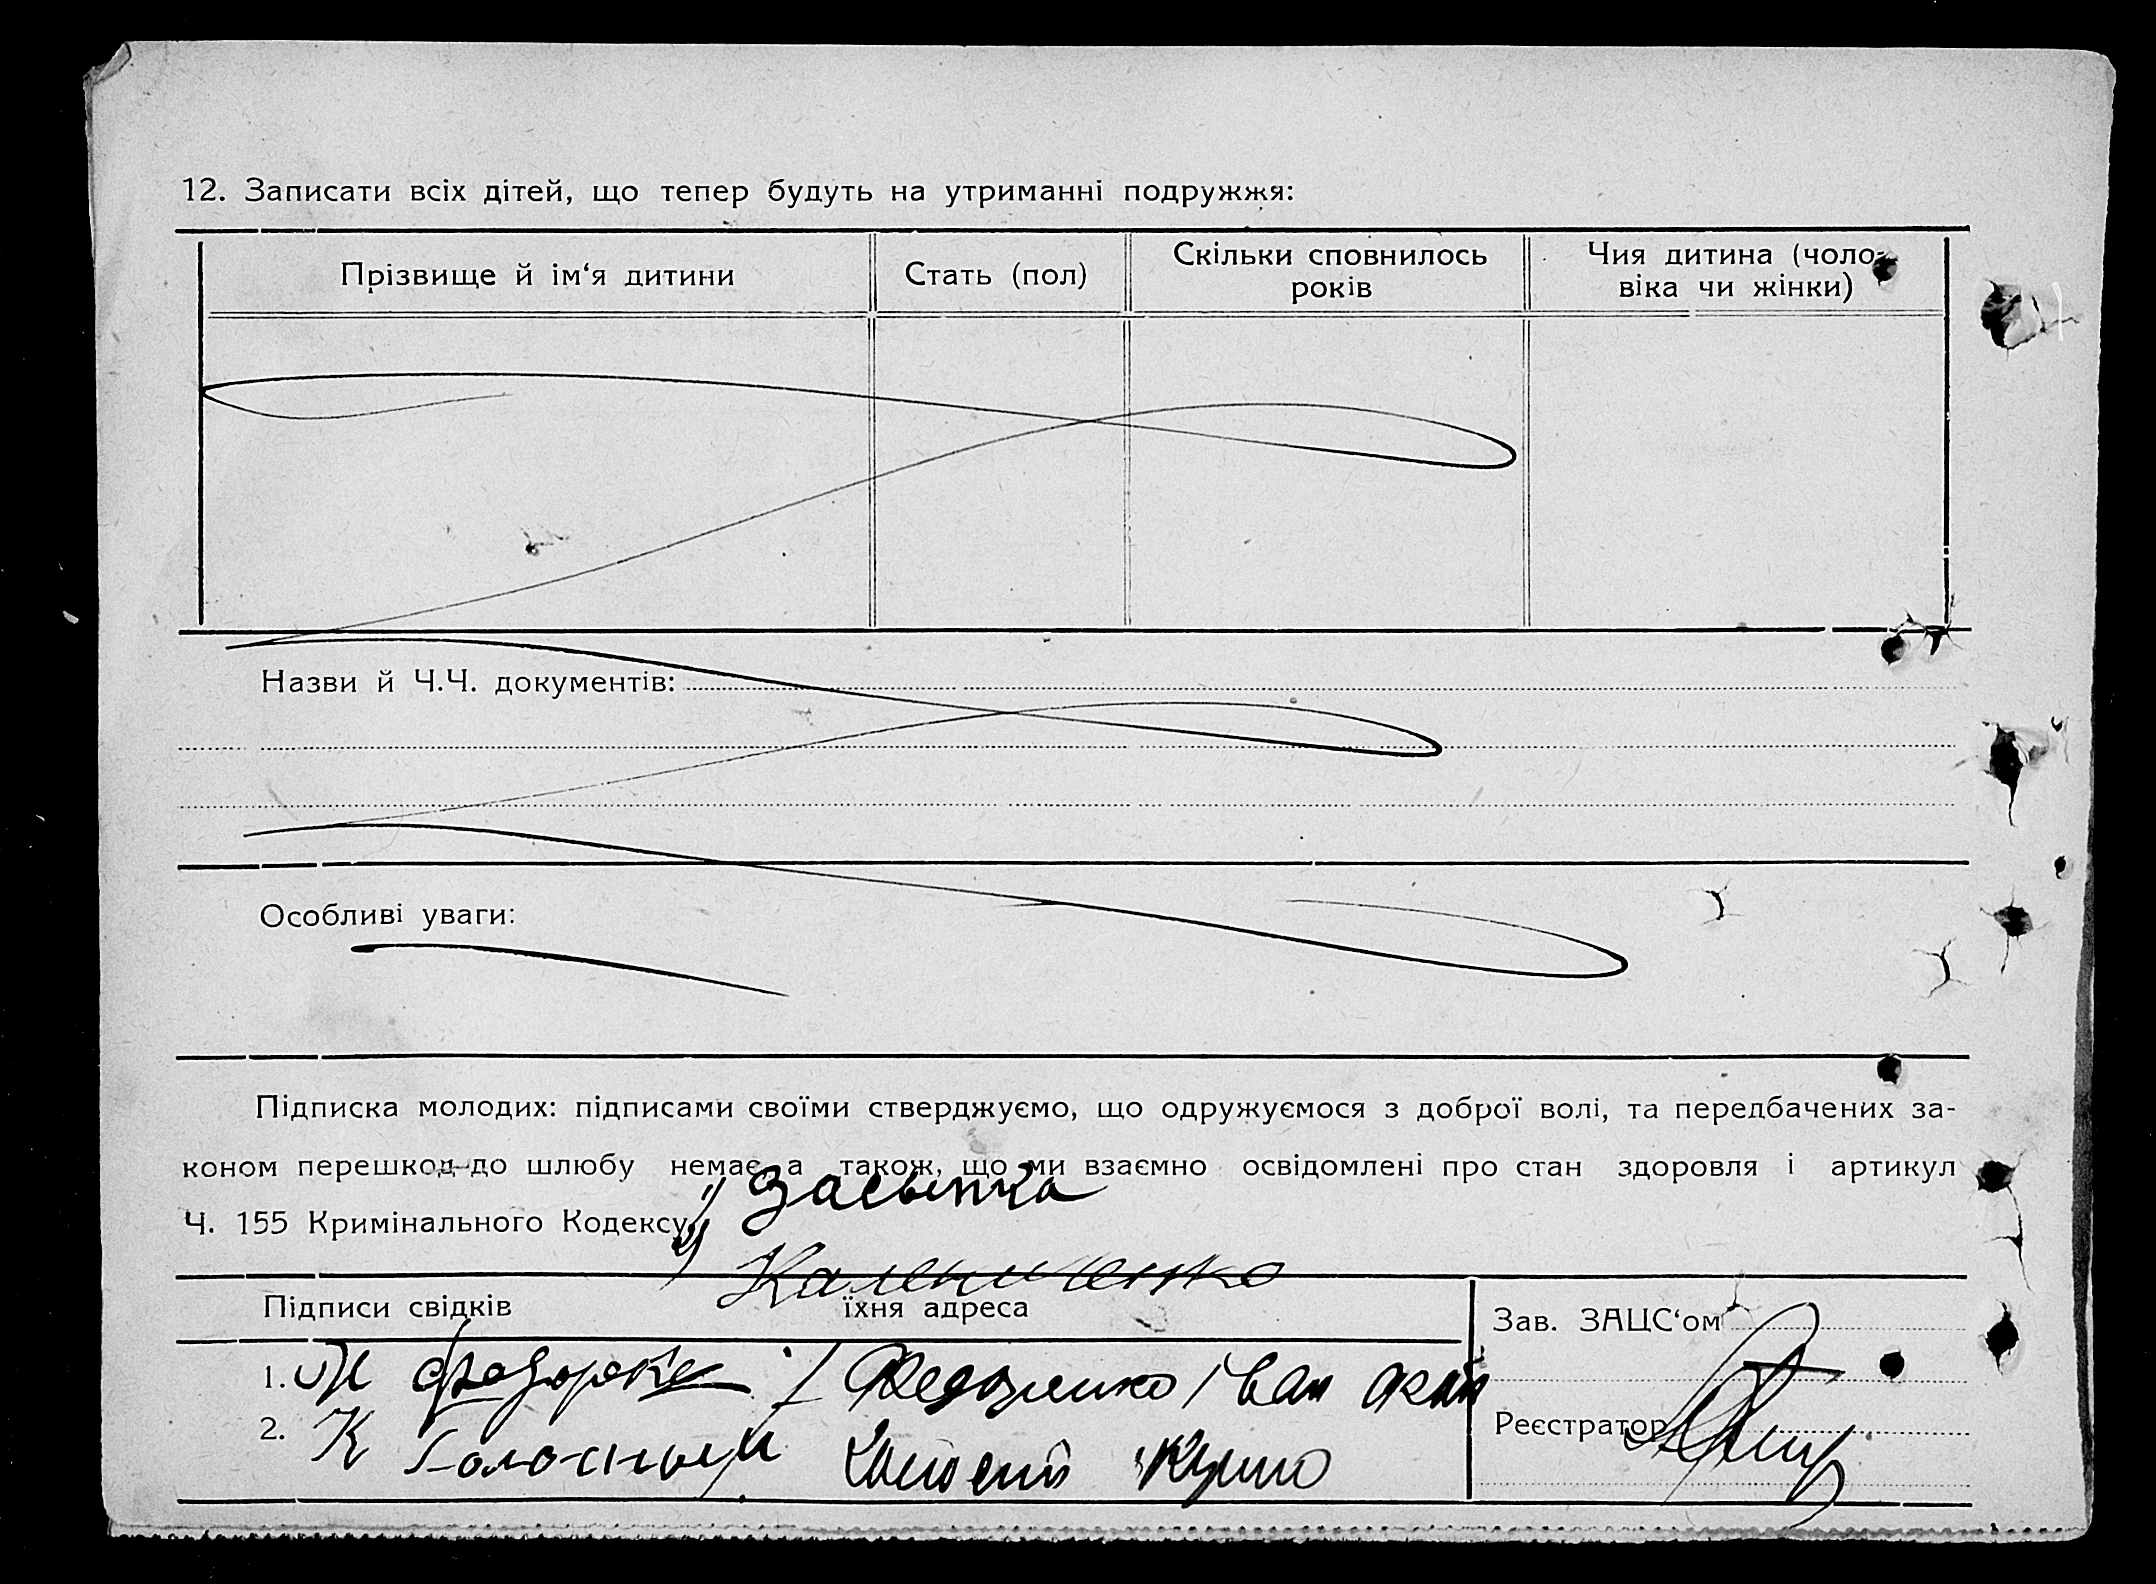 12. Записати всіх дітей, що тепер будуть на утриманні подружжя:
Прізвище й ім‘я дитини
Стать (пол)
Скільки сповнилось
років
Чия дитина (чоло-
віка чи жінки)
Назви й Ч.Ч. документів:
Особливі уваги:
Підписка молодих: підписами своїми стверджуємо, що одружуємося з доброї волі, та передбачених за-
коном перешкод до шлюбу немає, а також, що ми взаємно освідомлені про стан здоровля і артикул
Ч. 155 Кримінального Кодексу
1) Засыпка
2) Калениченко
Підписи свідків
їхня адреса
Зав. ЗАЦС‘ом
1. Федоренко Іван
2. К Голосный
Реєстратор